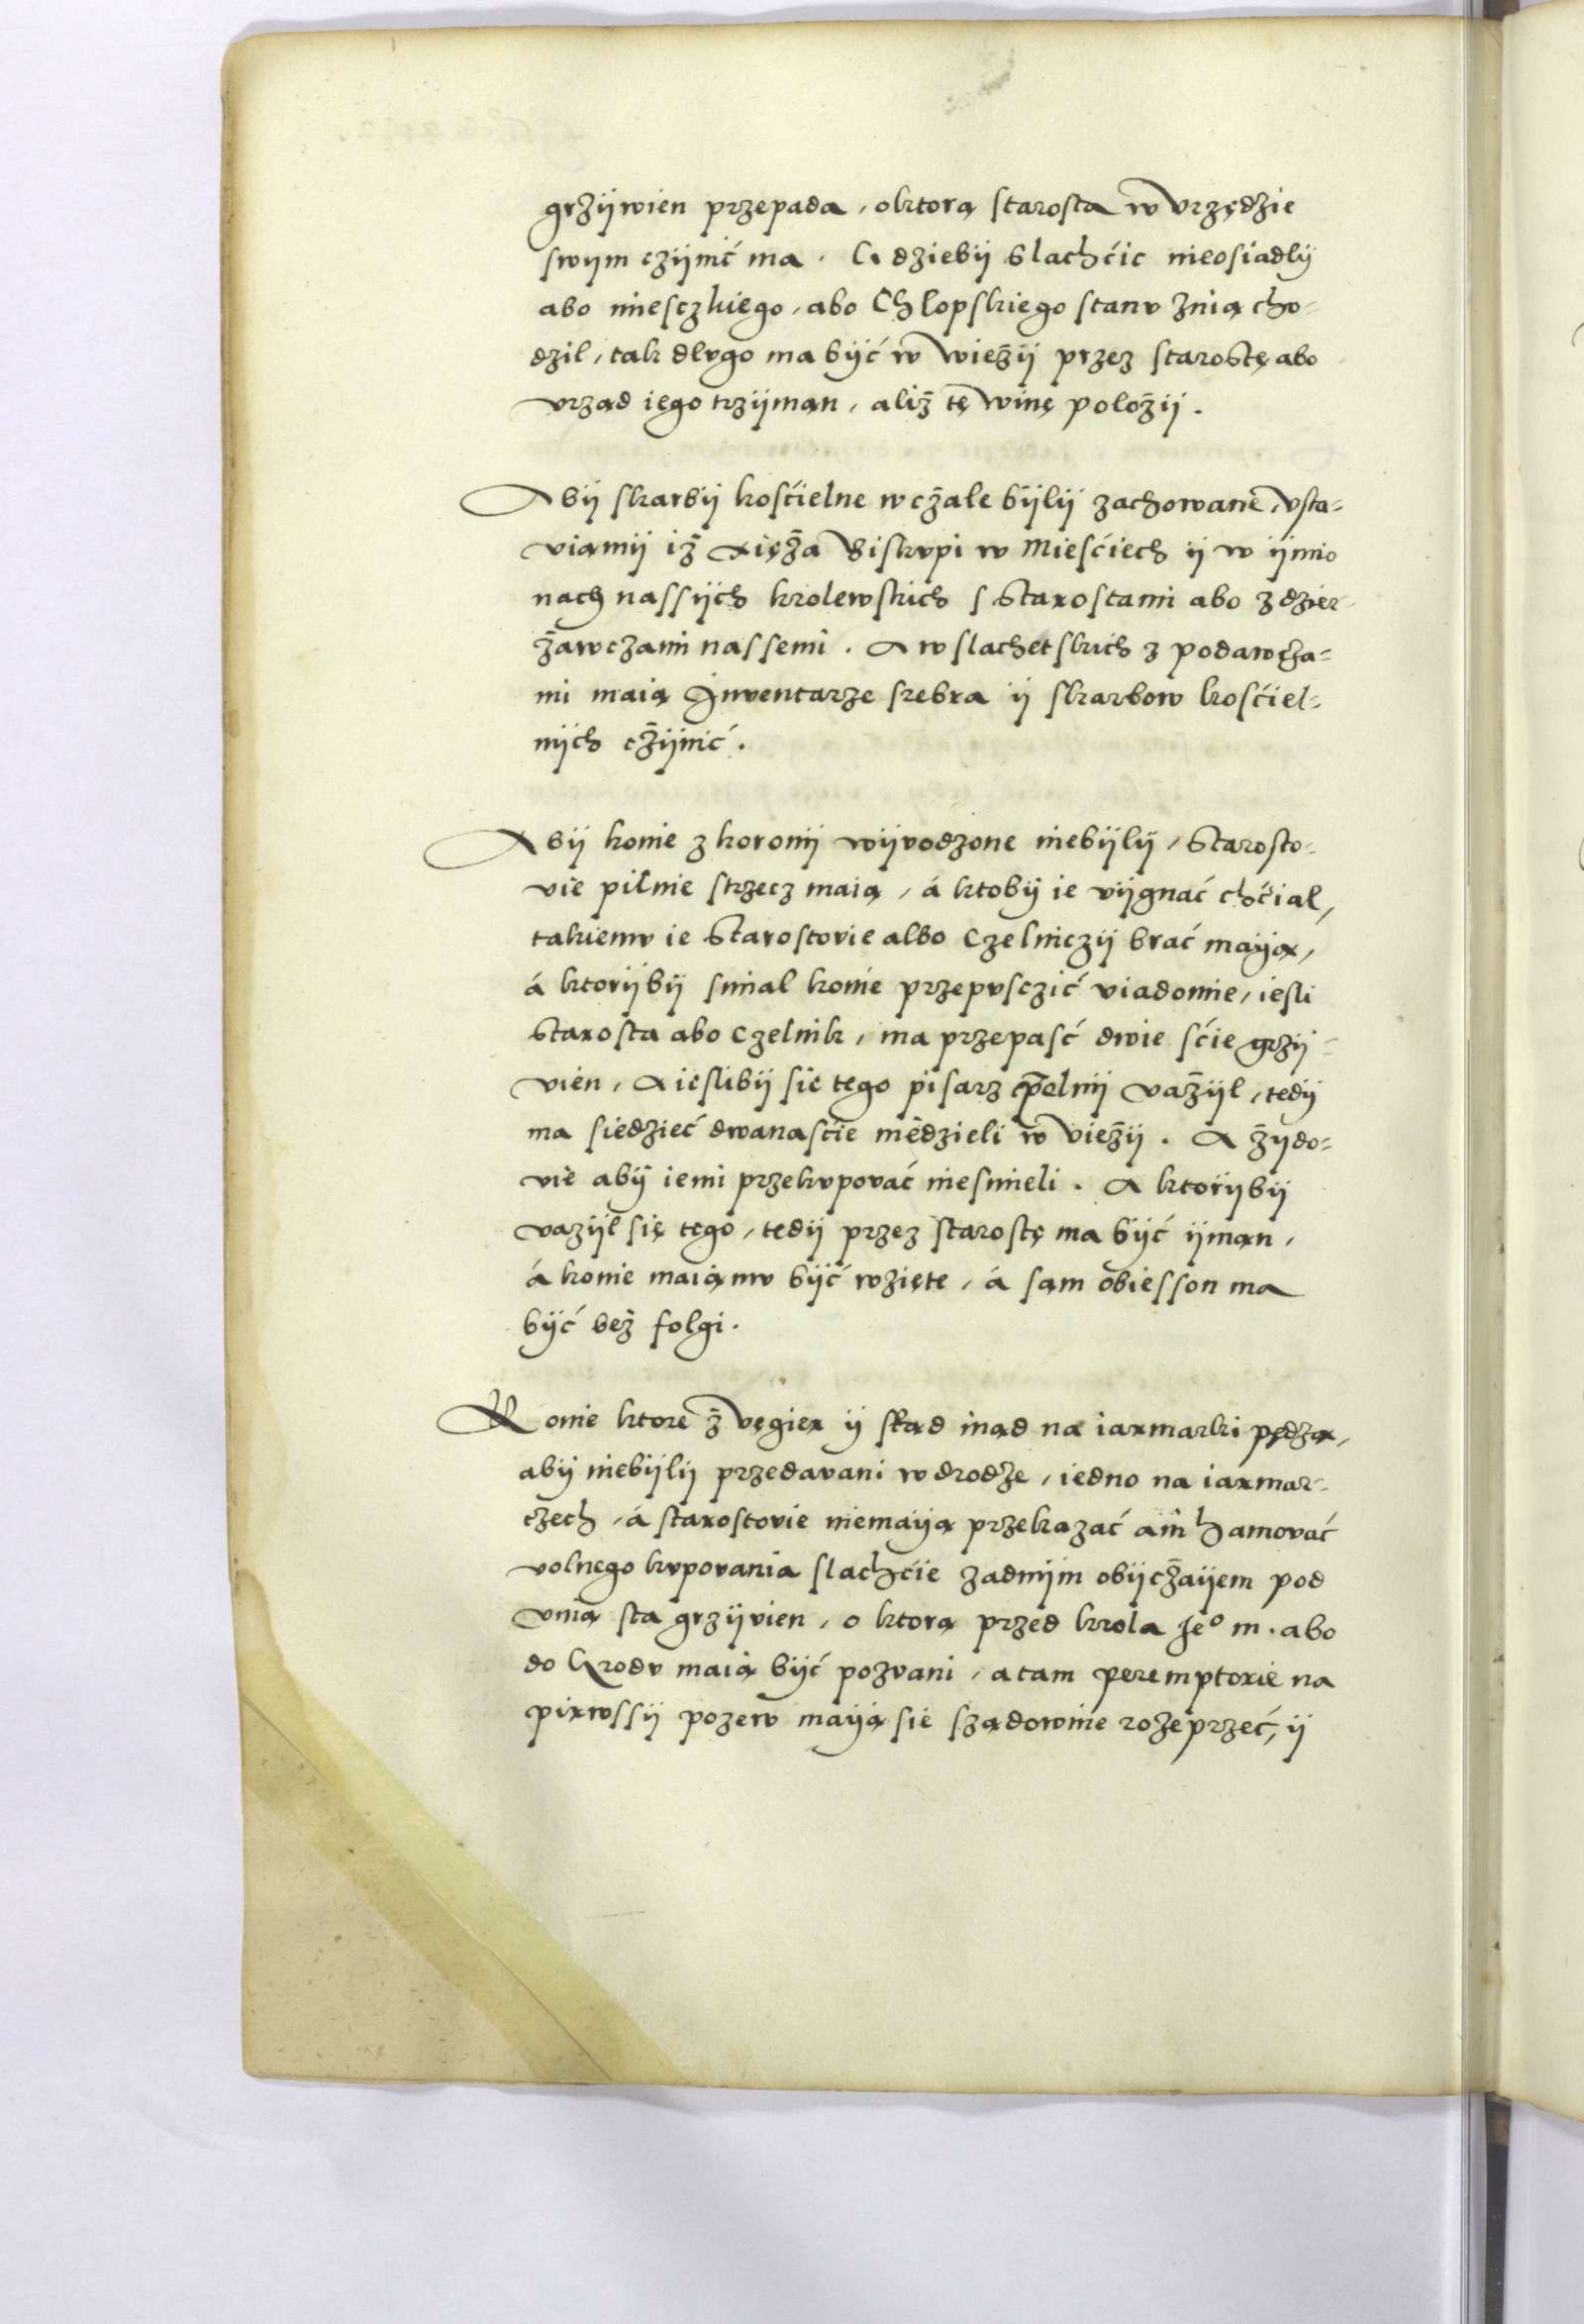 grzÿwien przepada, oktorą starosta w vrzędzie
swym czÿnić ma. Gdziebÿ slachćic nieosiadlÿ
abo miesczkięgo, abo Chlopskiego stanv znią cho-
dzil, tak dlvgo ma bÿć w wieżÿ przez starostę abo
vrząd ięgo trzÿmąn, aliż tę winę położÿ.
Abÿ skarbÿ kośćielne wcżale bÿlÿ zachowane, vsta-
viamÿ iż xięża Biskvpi w Mieśćiech ÿ w ÿmio
nach nassÿch krolewskich s starostami abo z dzier-
żawczami nassemi. A w slachetskich z podawcża-
mi maią Inventarze srebra ÿ skarbow kośćiel-
nÿch cżÿnić.
Abÿ konie z koronÿ wÿvodzone niebÿlÿ, Starosto-
vie pilnie strzecz maią, á ktobÿ ie vÿgnać chćial,
takiemv ie Starostovie albo Czelniczÿ brać maÿą,
á ktorÿbÿ smial konie przepvsczić viadomie, iesli
Starosta abo Czelnik, ma przepaść dwie śćie grzÿ-
vien, A ieslibÿ sie tego pisarz celnÿ vażÿl, tedÿ
ma siedzieć dwanaśćie niedzieli w vieżÿ. A żÿdo-
vie abÿ iemi przekvpovać niesmieli. A ktorÿbÿ
vazÿl się tęgo, tedÿ przez starostę ma bÿć ÿmąn,
á konie maią mv bÿć wzięte, á sąm obiesson ma
bÿć beż folgi.
Konie ktore ż vęgier ÿ skąd inąd na iarmarki pędzą,
abÿ niebÿlÿ przedavani w drodze, iedno na iarmar-
czech, á starostovie niemaÿą przekazać ani hamovać
volnego kvpovania slachćie żadnÿm obÿcżaÿem pod
viną sta grzÿvien, o ktorą przed krola Ieº m. abo
do Grodv maią bÿć pozvani, a tam peremptorie na
pirwssÿ pozew maÿą sie sządownie rozeprzeć, ÿ